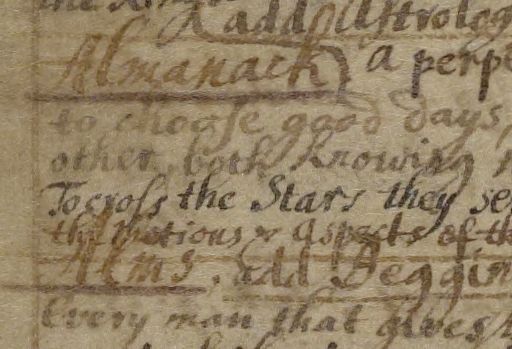 add Astrolog
Almanack) a perpe
to choose good days,
other, both knowing
To cross the Stars they se
the Motions & Aspects of th
Alms, add Beggin
Every man that gives